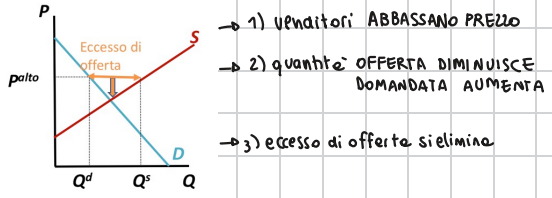 P
S
Eccesso di
offerta
Pᵃˡᵗᵒ
D
Qᵈ Qˢ Q
→ 1) venditori ABBASSANO PREZZO
→ 2) quantità OFFERTA DIMINUISCE
DOMANDATA AUMENTA
→ 3) eccesso di offerta si elimina